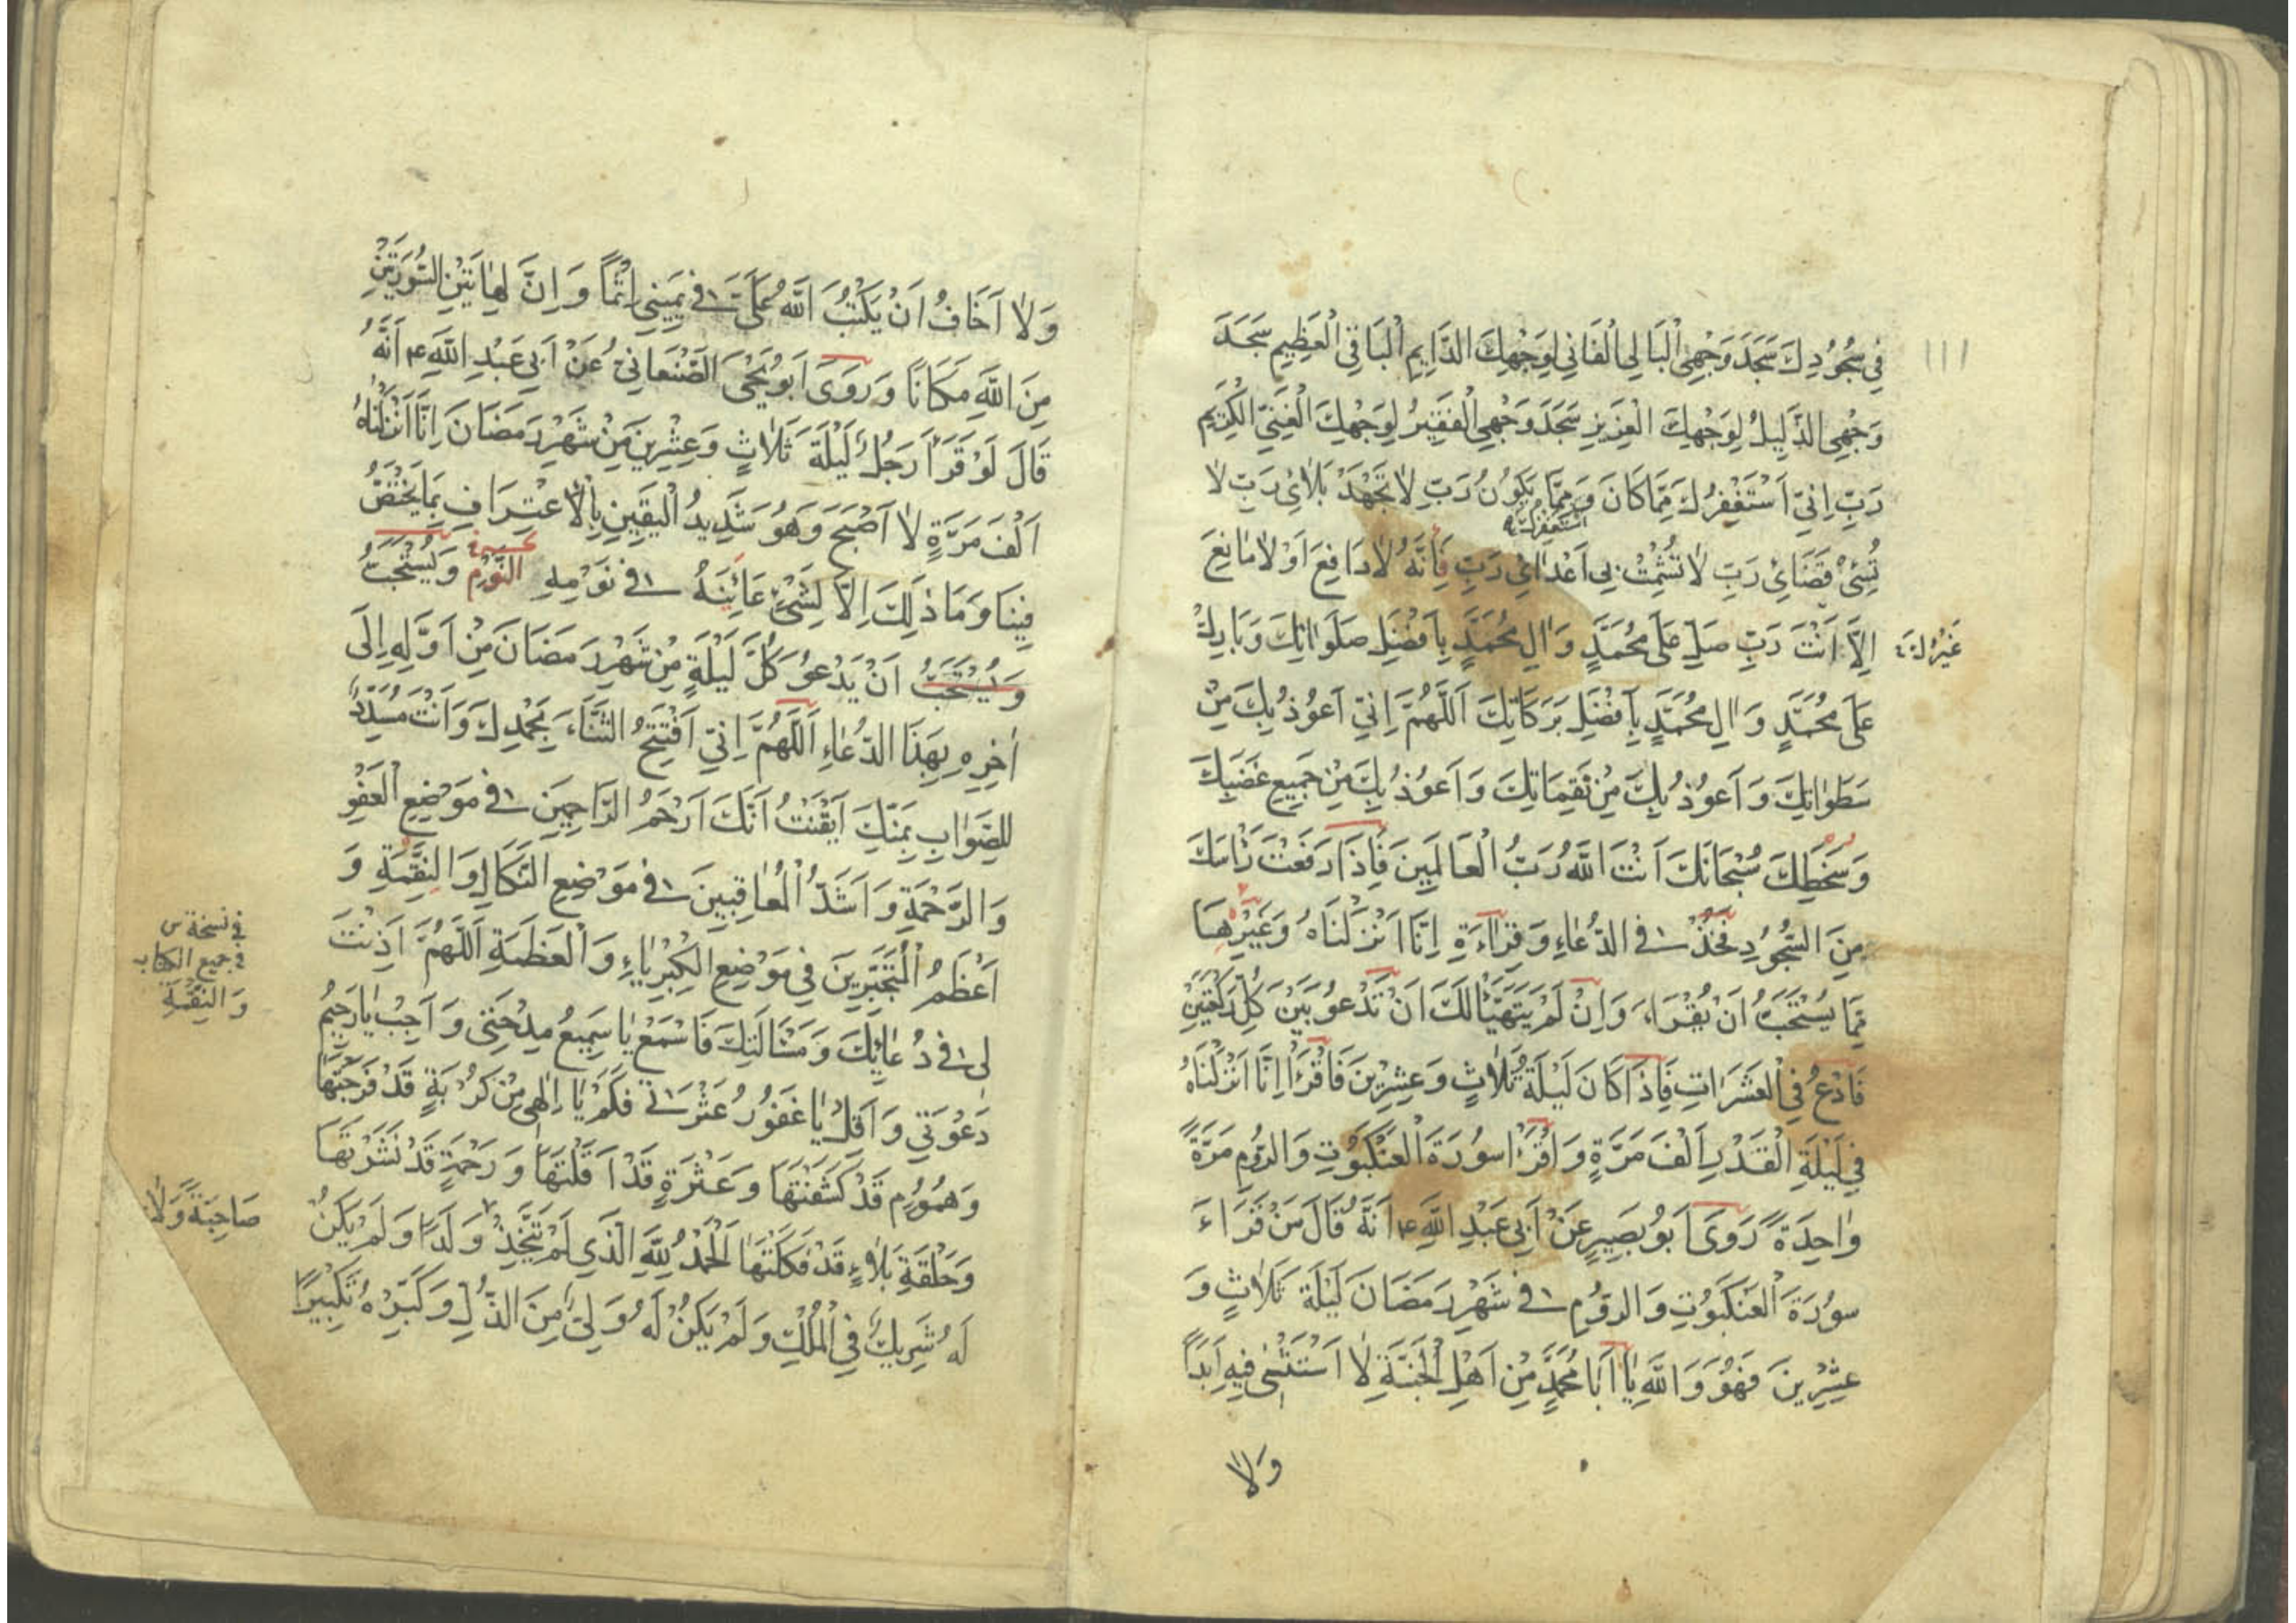 ١١١
فِي سُجُودِكَ سَجَدَ وَجْهِيَ الْبَالِي الْفَانِي لِوَجْهِكَ الدَّايِمِ الْبَاقِي الْعَظِيمِ سَجَدَ
وَجْهِي الذَّلِيلُ لِوَجْهِكَ الْعَزِيزِ سَجَدَ وَجْهِي الْفَقِيرُ لِوَجْهِكَ الْغَنِيِّ الْكَرِيمِ
رَبِّ اِنِّي اَسْتَغْفِرُكَ مِمَّا كَانَ وَ مِمَّا يَكُونُ رَبِّ لَا تَجْهَدْ بَلَائِي رَبِّ لَا
اَسْتَغْفِرُكَ
تُسِئْ قَضَائِي رَبِّ لَا تُشْمِتْ بِي اَعْدَائِي رَبِّ فَاِنَّهُ لَا دَافِعَ اَوْ لَا مَانِعَ
اِلَّا اَنْتَ رَبِّ صَلِّ عَلَى مُحَمَّدٍ وَ الِ مُحَمَّدٍ بِاَفْضَلِ صَلَوَاتِكَ وَ بَارِكْ
عَلَى مُحَمَّدٍ وَ الِ مُحَمَّدٍ بِاَفْضَلِ بَرَكَاتِكَ اَللَّهُمَّ اِنِّي اَعُوذُ بِكَ مِنْ
سَطَوَاتِكَ وَ اَعُوذُ بِكَ مِنْ نَقِمَاتِكَ وَ اَعُوذُ بِكَ مِنْ جَمِيعِ غَضَبِكَ
وَ سَخَطِكَ سُبْحَانَكَ اَنْتَ اللَّهُ رَبُّ الْعَالَمِينَ فَاِذَا رَفَعْتَ رَأْسَكَ
مِنَ السُّجُودِ فَخُذْ فِي الدُّعَاءِ وَ قِرَاءَةِ اِنَّا اَنْزَلْنَاهُ وَ غَيْرِهَا
مِمَّا يُسْتَحَبُّ اَنْ يُقْرَاَ، وَ اِنْ لَمْ يَتَهَيَّأْ لَكَ اَنْ تَدْعُوَ بَيْنَ كُلِّ رَكْعَتَيْنِ
فَادْعُ فِي الْعَشَرَاتِ فَاِذَا كَانَ لَيْلَةُ ثَلَاثٍ وَ عِشْرِينَ فَاقْرَأْ اِنَّا اَنْزَلْنَاهُ
فِي لَيْلَةِ الْقَدْرِ اَلْفَ مَرَّةٍ وَ اقْرَأْ سُورَةَ الْعَنْكَبُوتِ وَ الرُّومِ مَرَّةً
وَاحِدَةً رَوَى اَبُو بَصِيرٍ عَنْ اَبِي عَبْدِ اللَّهِ ع اَنَّهُ قَالَ مَنْ قَرَاءَ
سُورَةَ الْعَنْكَبُوتِ وَ الرُّومِ فِي شَهْرِ رَمَضَانَ لَيْلَةَ ثَلَاثٍ وَ
عِشْرِينَ فَهُوَ وَ اللَّهِ يَا اَبَا مُحَمَّدٍ مِنْ اَهْلِ الْجَنَّةِ لَا اَسْتَثْنِي فِيهِ اَبَدًا
وَلَا
وَلَا اَخَافُ اَنْ يَكْتُبَ اللَّهُ عَلَيَّ فِي يَمِينِي اِثْمًا وَ اِنَّ لِهَاتَيْنِ السُّورَتَيْنِ
مِنَ اللَّهِ مَكَانًا وَ رَوَى اَبُو يَحْيَى الصَّنْعَانِيُّ عَنْ اَبِي عَبْدِ اللَّهِ ع اَنَّهُ
قَالَ لَوْ قَرَاَ رَجُلٌ لَيْلَةَ ثَلَاثٍ وَ عِشْرِينَ مِنْ شَهْرِ رَمَضَانَ اِنَّا اَنْزَلْنَاهُ
اَلْفَ مَرَّةٍ لَا اَصْبَحَ وَ هُوَ شَدِيدُ الْيَقِينِ بِالْاعْتِرَافِ بِمَا يَخْتَصُّ
فِينَا وَ مَا ذَلِكَ اِلَّا لِشَيْءٍ عَايَنَهُ فِي نَوْمِهِ النَّوْمِ وَ يُسْتَحَبُّ
وَ يُسْتَحَبُّ اَنْ يَدْعُوَ كُلَّ لَيْلَةٍ مِنْ شَهْرِ رَمَضَانَ مِنْ اَوَّلِهِ اِلَى
اخِرِهِ بِهَذَا الدُّعَاءِ اَللَّهُمَّ اِنِّي اَفْتَتِحُ الثَّنَاءَ بِحَمْدِكَ وَ اَنْتَ مُسَدِّدٌ
لِلصَّوَابِ بِمَنِّكَ اَيْقَنْتُ اَنَّكَ اَرْحَمُ الرَّاحِمِينَ فِي مَوْضِعِ الْعَفْوِ
وَ الرَّحْمَةِ وَ اَشَدُّ الْمُعَاقِبِينَ فِي مَوْضِعِ النَّكَالِ وَ النَّقِمَةِ وَ
اَعْظَمُ الْمُتَجَبِّرِينَ فِي مَوْضِعِ الْكِبْرِيَاءِ وَ الْعَظَمَةِ اَللَّهُمَّ اَذِنْتَ
لِي فِي دُعَائِكَ وَ مَسْئَالَتِكَ فَاسْمَعْ يَا سَمِيعُ مِدْحَتِي وَ اَجِبْ يَا رَحِيمُ
دَعْوَتِي وَ اَقِلْ يَا غَفُورُ عَثْرَتِي فَكَمْ يَا اِلَهِي مِنْ كُرْبَةٍ قَدْ فَرَّجْتَهَا
وَ هُمُومٍ قَدْ كَشَفْتَهَا وَ عَثْرَةٍ قَدْ اَقَلْتَهَا وَ رَحْمَةٍ قَدْ نَشَرْتَهَا
وَ حَلْقَةِ بَلَاءٍ قَدْ فَكَكْتَهَا اَلْحَمْدُ لِلَّهِ الَّذِي لَمْ يَتَّخِذْ وَلَدًا وَ لَمْ يَكُنْ
لَهُ شَرِيكٌ فِي الْمُلْكِ وَ لَمْ يَكُنْ لَهُ وَلِيٌّ مِنَ الذُّلِّ وَ كَبِّرْهُ تَكْبِيرًا
فى نسخة س
فى جميع الكتاب
وَ النَّقِمَةِ
صَاحِبَةً وَلَا